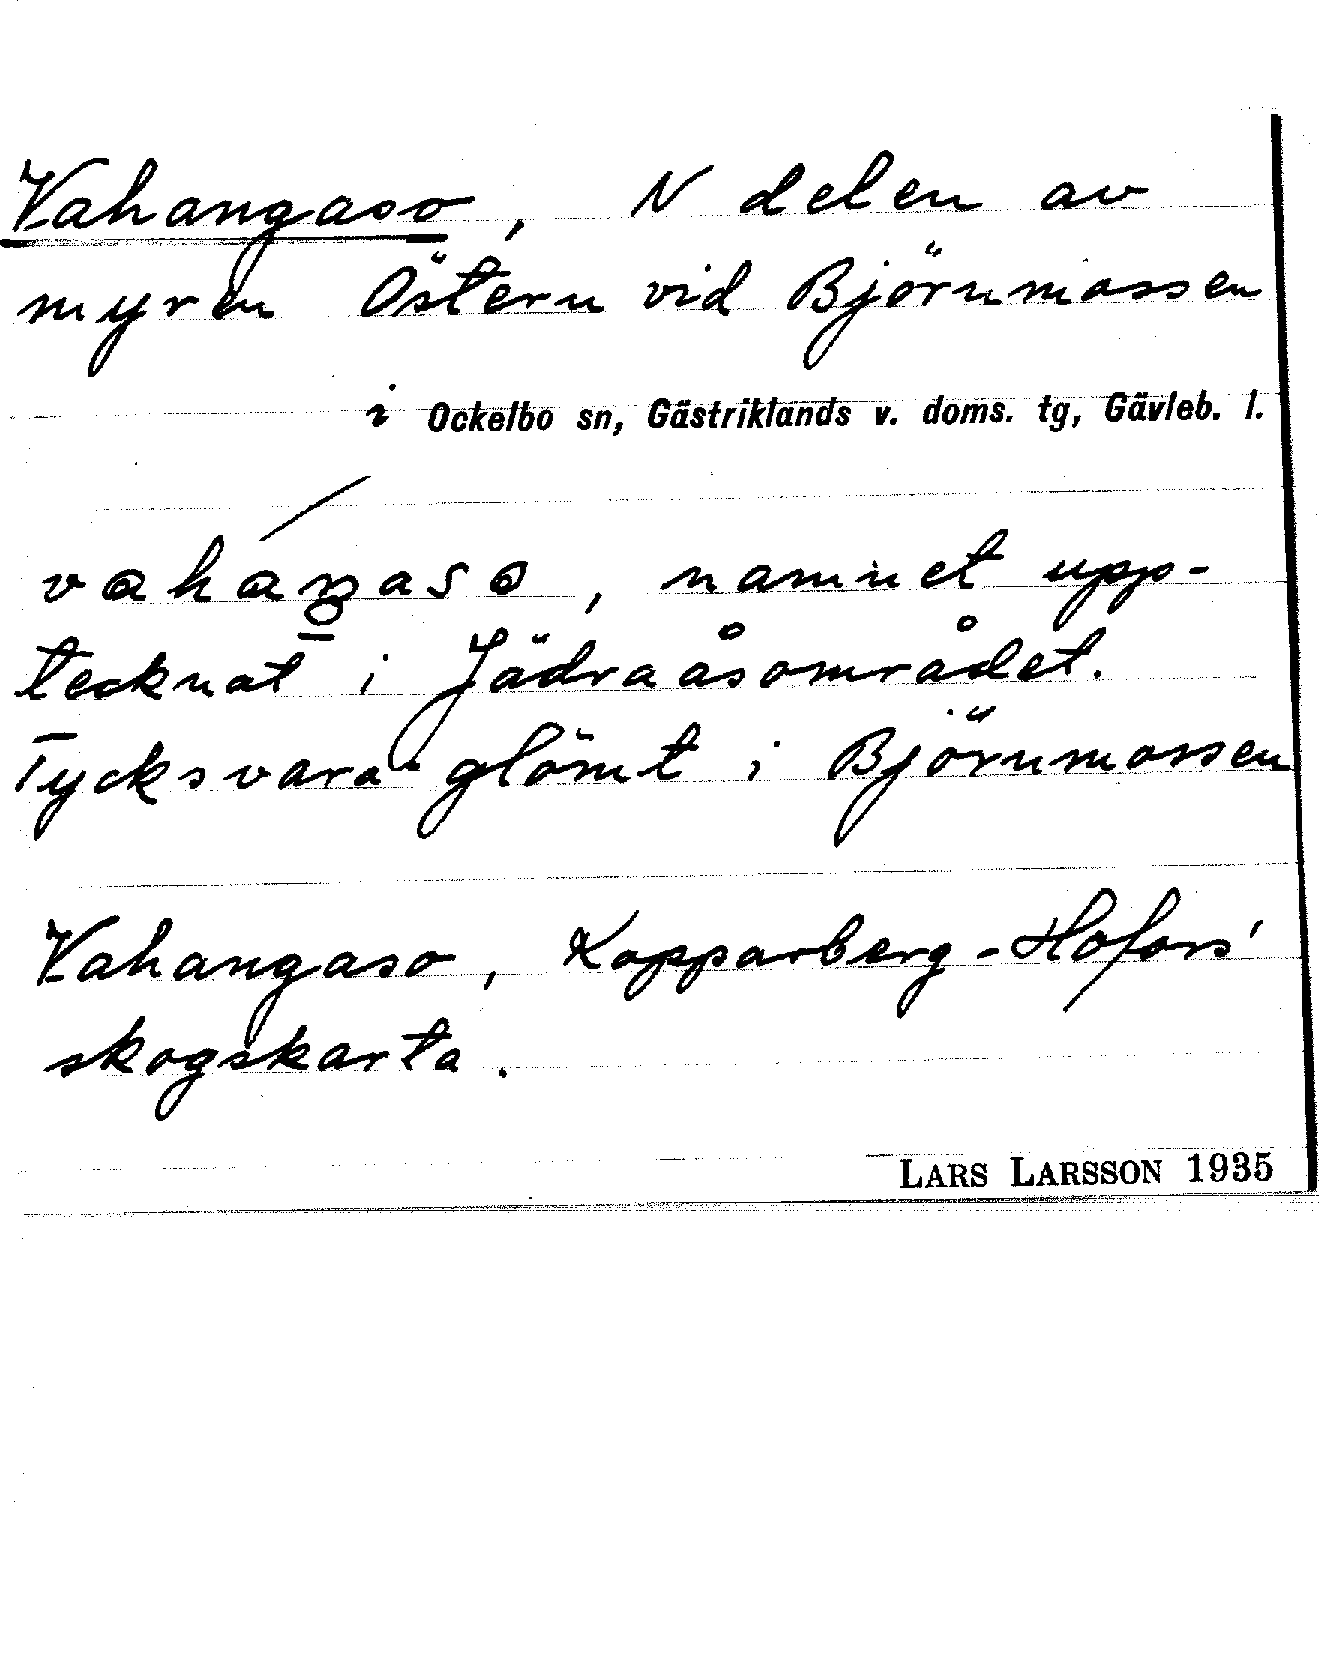 Vahangaso, N delen av
myren Östern vid Björnmossen
i Ockelbo sn, Gästriklands v. doms. tg, Gävleb. l.
vahaŋaso, namnet upp-
tecknat i Jädraåsområdet.
Tycks vara glömt i Björnmossen
Vahangaso, Kopparberg-Hofors'
skogskarta.
LARS LARSSON 1935